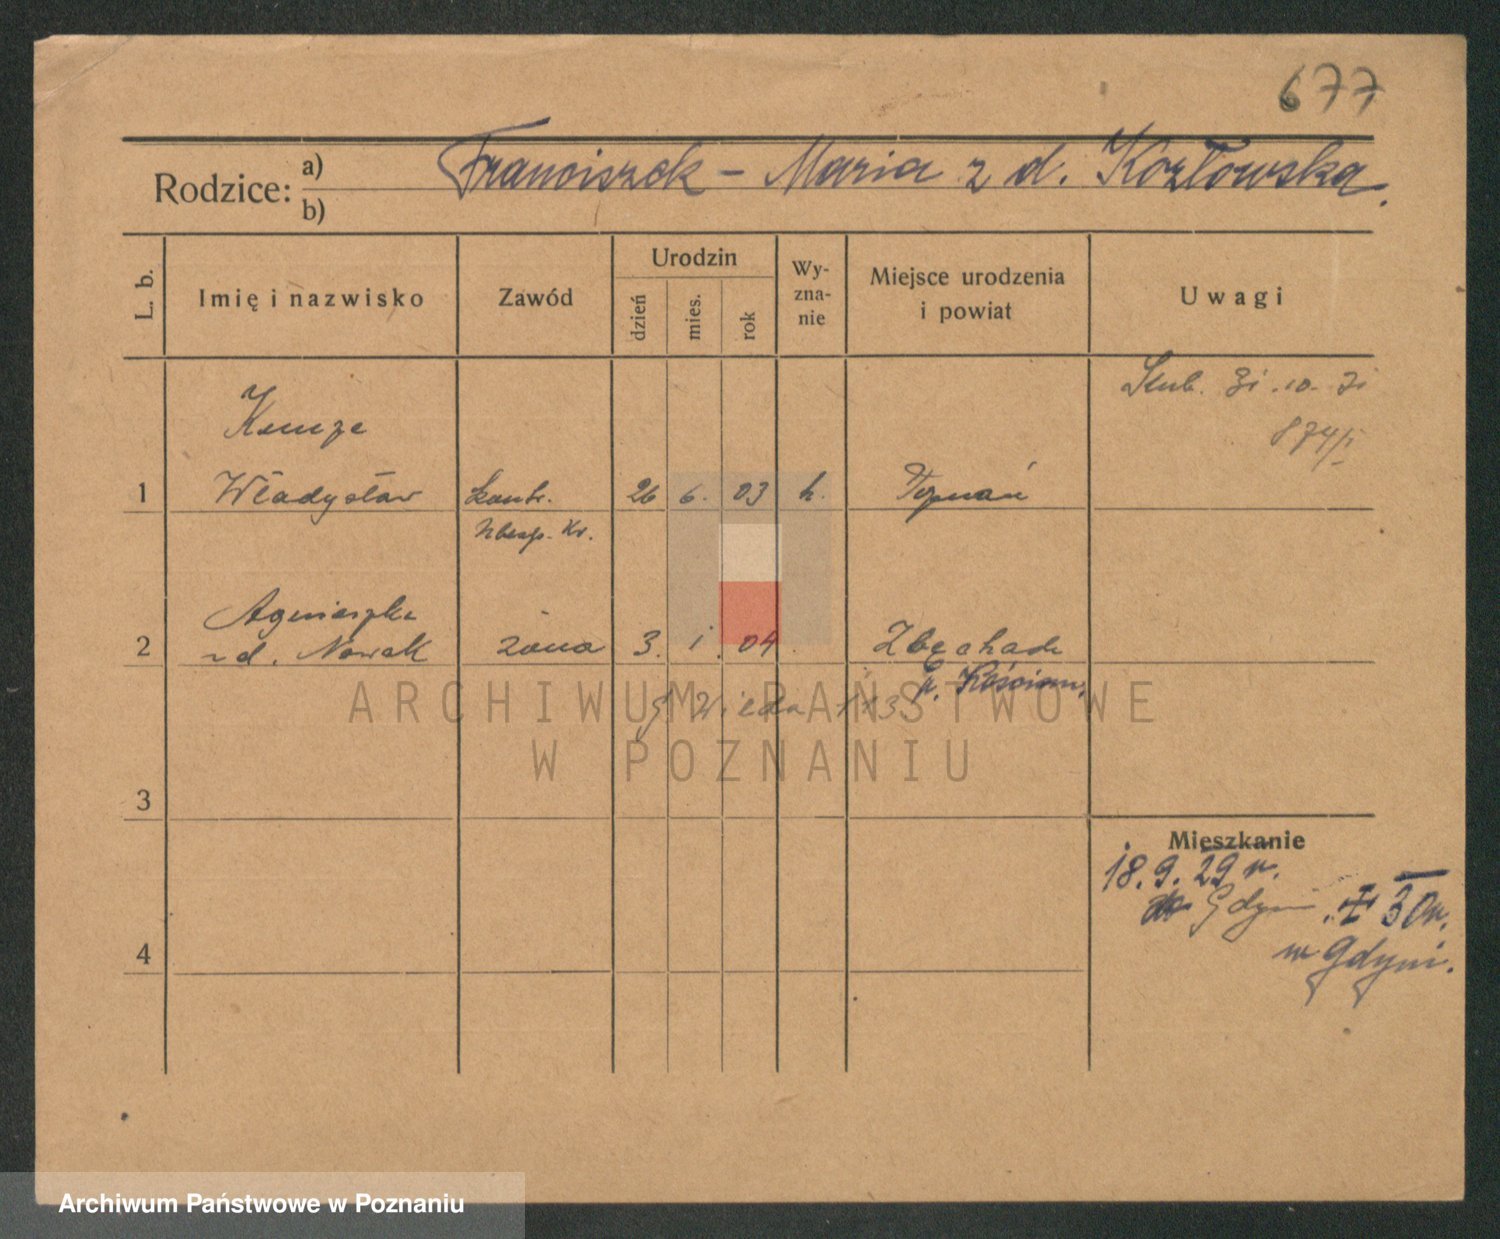 677
Rodzice: a) Franciszek - Maria z d. Kozłowska.
b)
L. b.
Imię i nazwisko
Zawód
Urodzin
dzień
mies.
rok
Wy-
zna-
nie
Miejsce urodzenia
i powiat
Uwagi
1
Władysław
26 6. 03
Poznań
874/I
2
Agnieszka
z d. Nowak
żona
3. 1. 04
p. Kościan,
3
4
Mieszkanie
18. 9. 29 r.
do Gdyni
w Gdyni.
ARCHIWUM PAŃSTWOWE
W POZNANIU
Archiwum Państwowe w Poznaniu